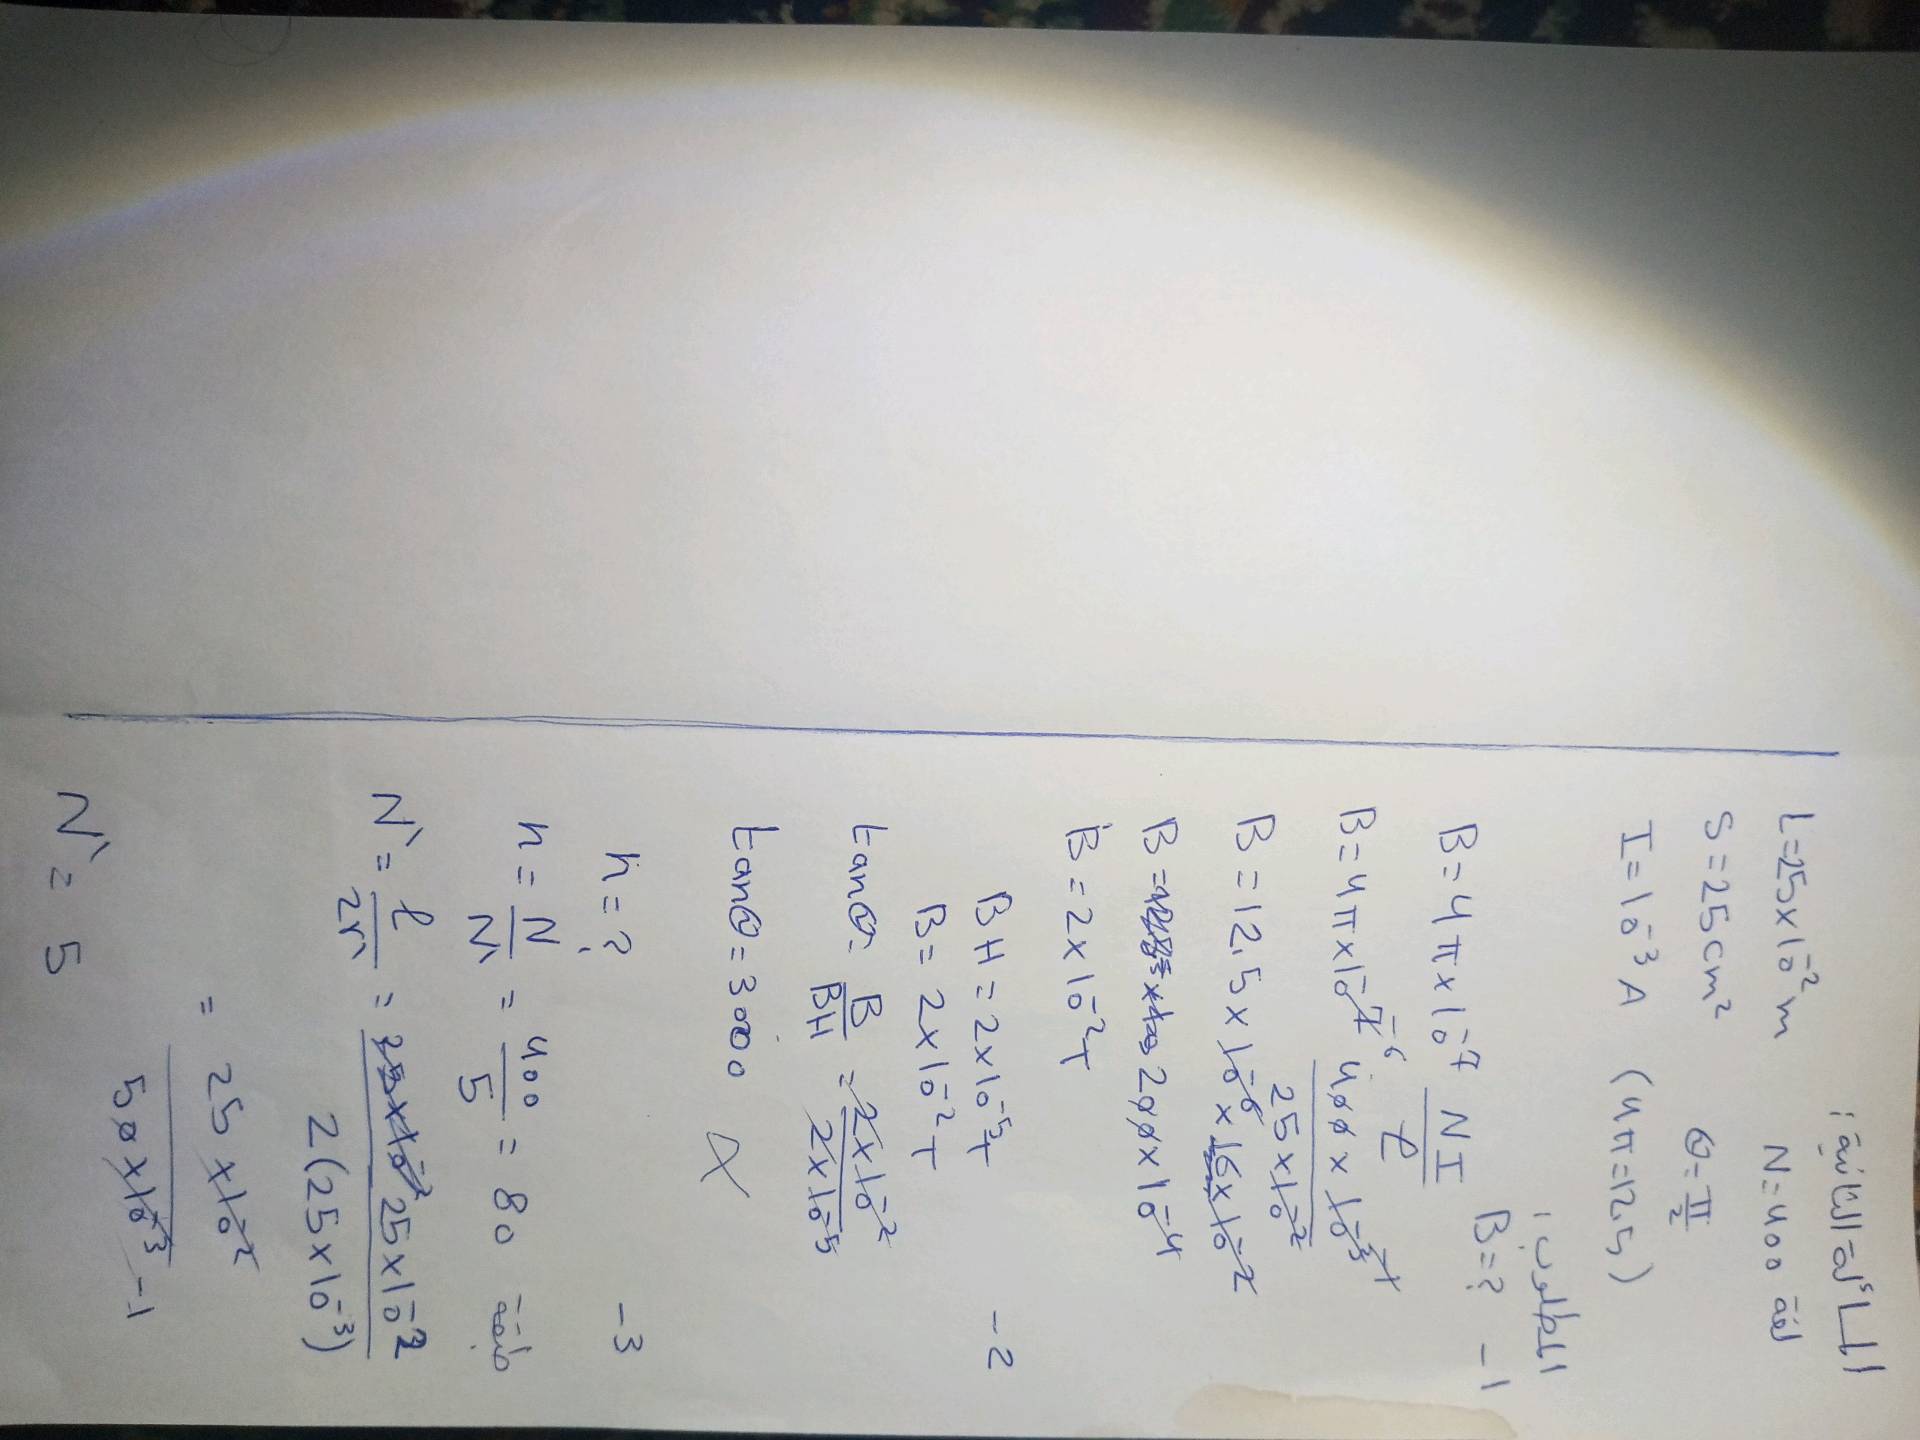 المسألة الثانية:
L=25×10⁻² m   N=400 لفة
S=25 cm²   θ=π/2
I=10⁻³ A   (4π=12.5)
المطلوب:
1- B=?
B=4π×10⁻⁷ NI/ℓ
B=4π×10⁻⁷ ⁻⁶ 400×10⁻³/25×10⁻²
B=12.5×10⁻⁶×16×10⁻²
B=200×10⁻⁴
B=2×10⁻² T
2- BH=2×10⁻⁵ T
B=2×10⁻² T
tanθ=B/BH=2×10⁻²/2×10⁻⁵
tanθ=3000
3- n=?
n=N/N'=400/5=80 طبقة
N'=ℓ/2r'=25×10⁻²/2(25×10⁻³)
=25×10⁻²/50×10⁻³ -1
N'=5